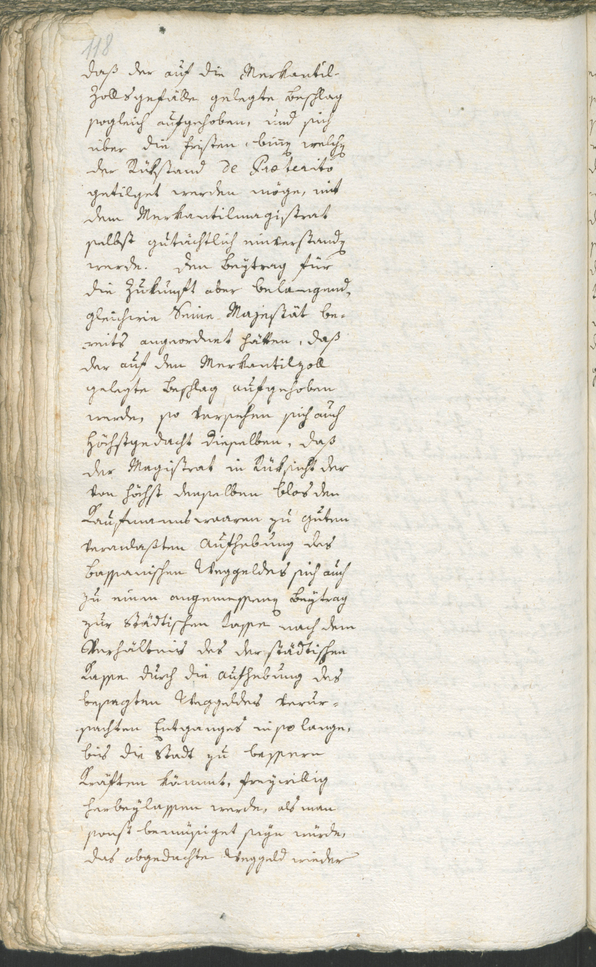 118
daß der auf die Merkantil-
Zollsgefälle gelegte Beschlag
sogleich aufgehoben, und sich
über die Fristen, binen welchen
der Rükstand de Præterito
getilget werden möge, mit
dem Merkantilmagistrat
selbst gutächtlich einverstanden
werde. Den Beytrag für
die Zukunft aber belangend,
gleichwie Seine Majestät be-
reits angeordnet hätten, daß
der auf den Merkantilzoll
gelegte Beschlag aufgehoben
werde, so versehen sich auch
Höchstgedacht Dieselben, daß
der Magistrat in Rüksicht der
von Höchst denselben blos den
Kaufmannswaaren zu guten
veranlaßten Aufhebung des
Bassanischen Weggeldes sich auch
zu einem angemessenen Beytrag
zur Städtischen Kasse nach dem
Verhältnis des der städtischen
Kasse durch die Aufhebung des
besagten Weggeldes verur-
sachten Entganges in so lange,
bis die Stadt zu bessern
Kräften kömmt, freywillig
herbeylassen werde, als man
sonst bemüssiget seyn würde,
das obgedachte Weggeld wieder